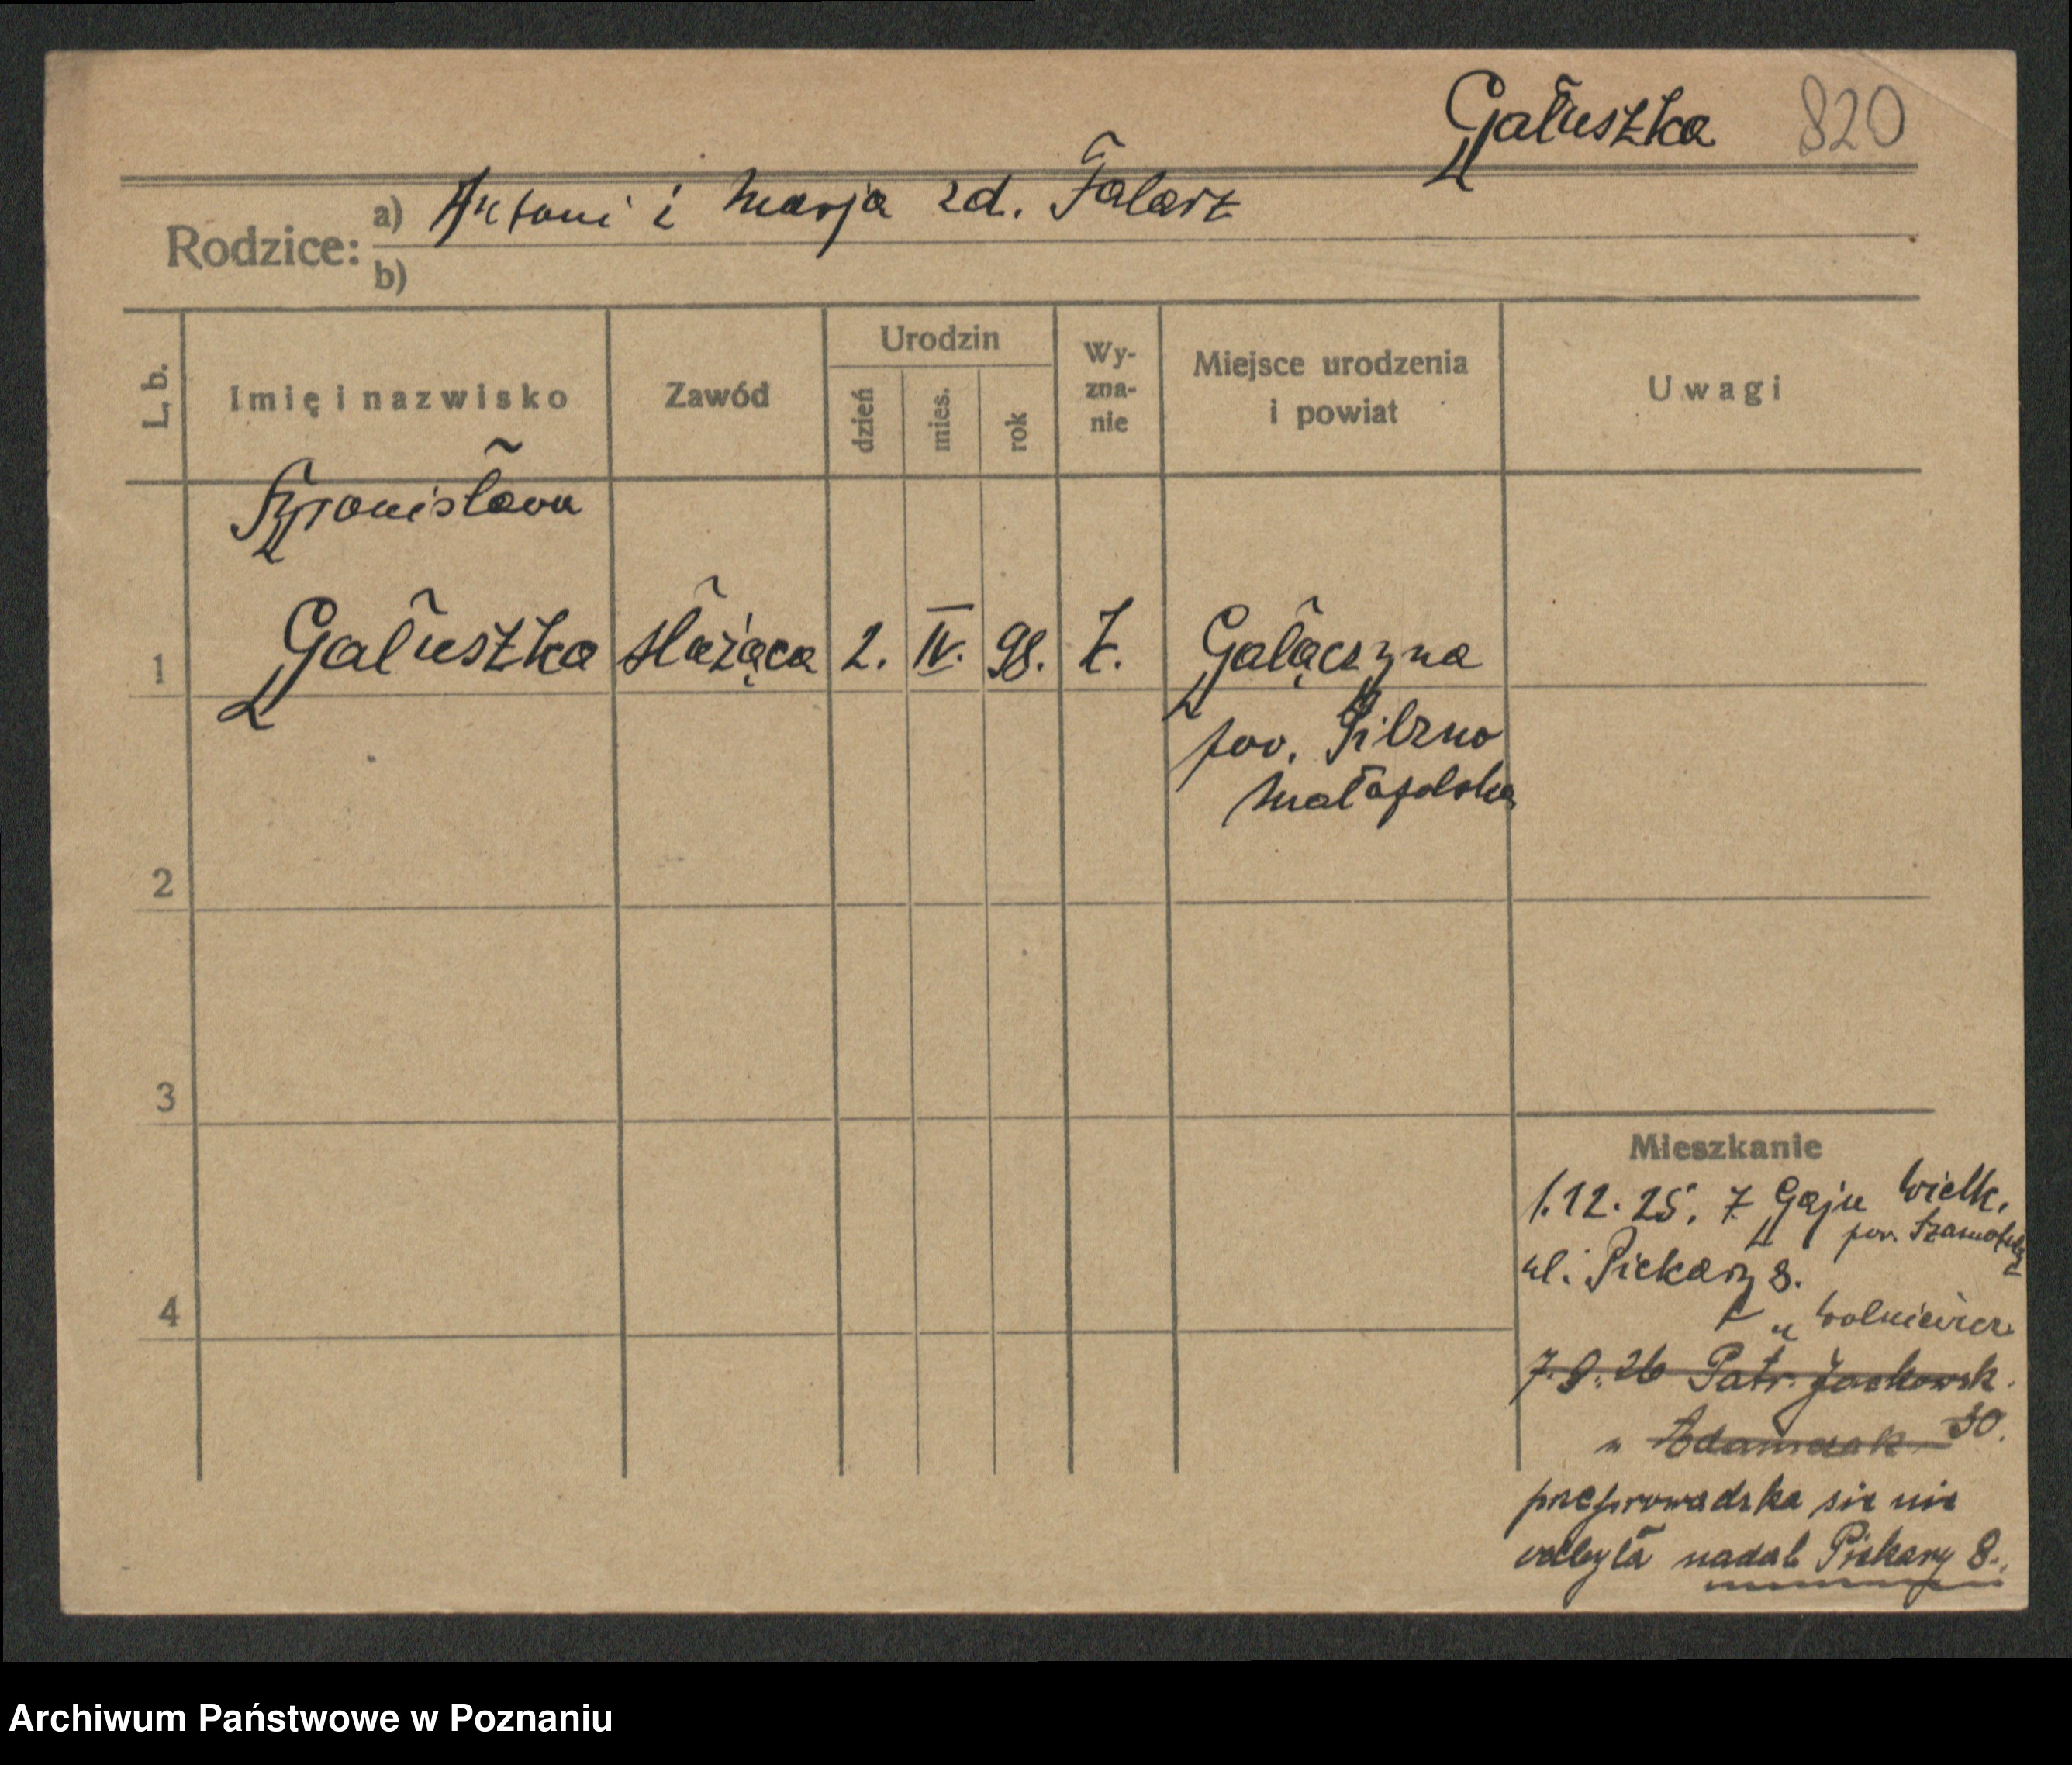 Gałuszka 820
Rodzice: a) Antoni i Marja zd. Falarz
b)
L. b. Imię i nazwisko Zawód Urodzin dzień mies. rok Wyznanie Miejsce urodzenia i powiat Uwagi
Bronisława
1 Gałuszka służąca 2. IV. 98. k. Gałączyna
pow. Pilzno
Małopolska
2
3
4
Mieszkanie
1.12.25. z Gaju Wielk.
pow. Szamotuły
ul. Piekary 8.
u Wolniewicz
7.9.26 Patr. Jackowsk.
u Adamczak 30.
przeprowadzka się nie
odbyła nadal Piekary 8.
Archiwum Państwowe w Poznaniu